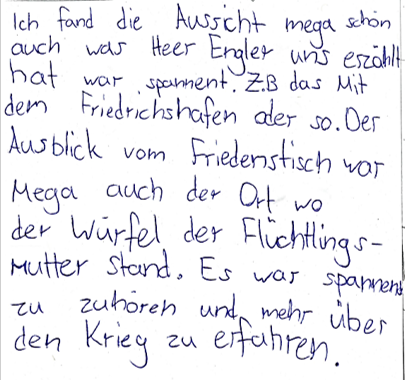 Ich fand die Aussicht mega schön
auch was Heer Engler uns erzählt
hat war spannent. Z.B das Mit
dem Friedrichshafen oder so. Der
Ausblick vom Friedenstisch war
Mega auch der Ort wo
der Würfel der Flüchtlings-
Mutter Stand. Es war spannent
zu zuhören und mehr über
den Krieg zu erfahren.